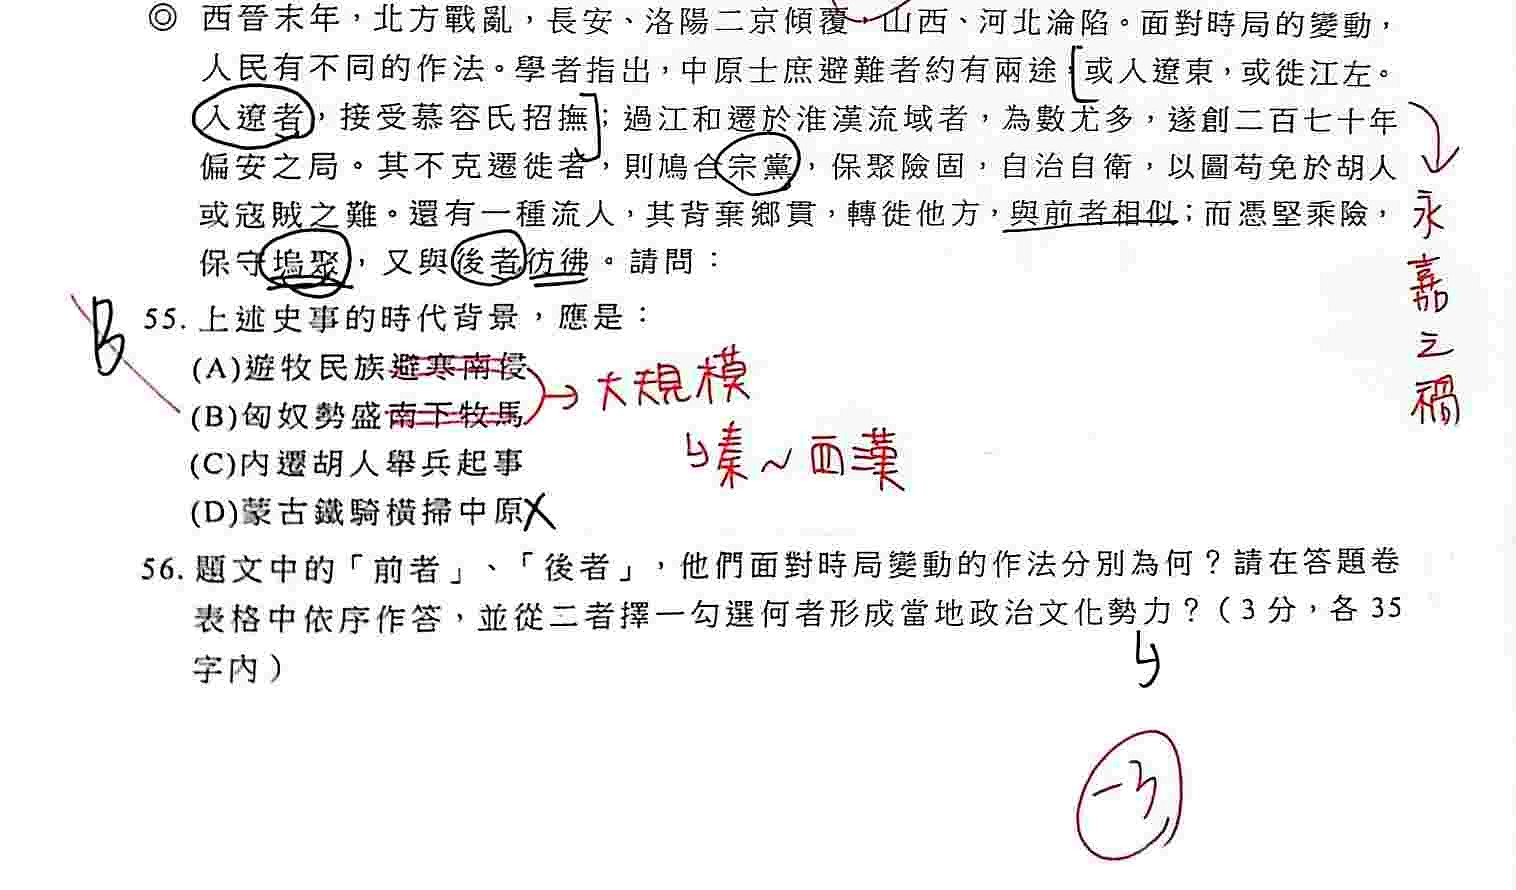 ◎ 西晉末年，北方戰亂，長安、洛陽二京傾覆，山西、河北淪陷。面對時局的變動，
人民有不同的作法。學者指出，中原士庶避難者約有兩途，或入遼東，或徙江左。
入遼者，接受慕容氏招撫；過江和遷於淮漢流域者，為數尤多，遂創二百七十年
偏安之局。其不克遷徙者，則鳩合宗黨，保聚險固，自治自衛，以圖苟免於胡人
或寇賊之難。還有一種流人，其背棄鄉貫，轉徙他方，與前者相似；而憑堅乘險，
保守塢聚，又與後者彷彿。請問：
永嘉之禍
B
55. 上述史事的時代背景，應是：
(A)遊牧民族避寒南侵
(B)匈奴勢盛南下牧馬
→大規模
↳秦～西漢
(C)內遷胡人舉兵起事
(D)蒙古鐵騎橫掃中原
56. 題文中的「前者」、「後者」，他們面對時局變動的作法分別為何？請在答題卷
表格中依序作答，並從二者擇一勾選何者形成當地政治文化勢力？（3 分，各 35
字內）
-3